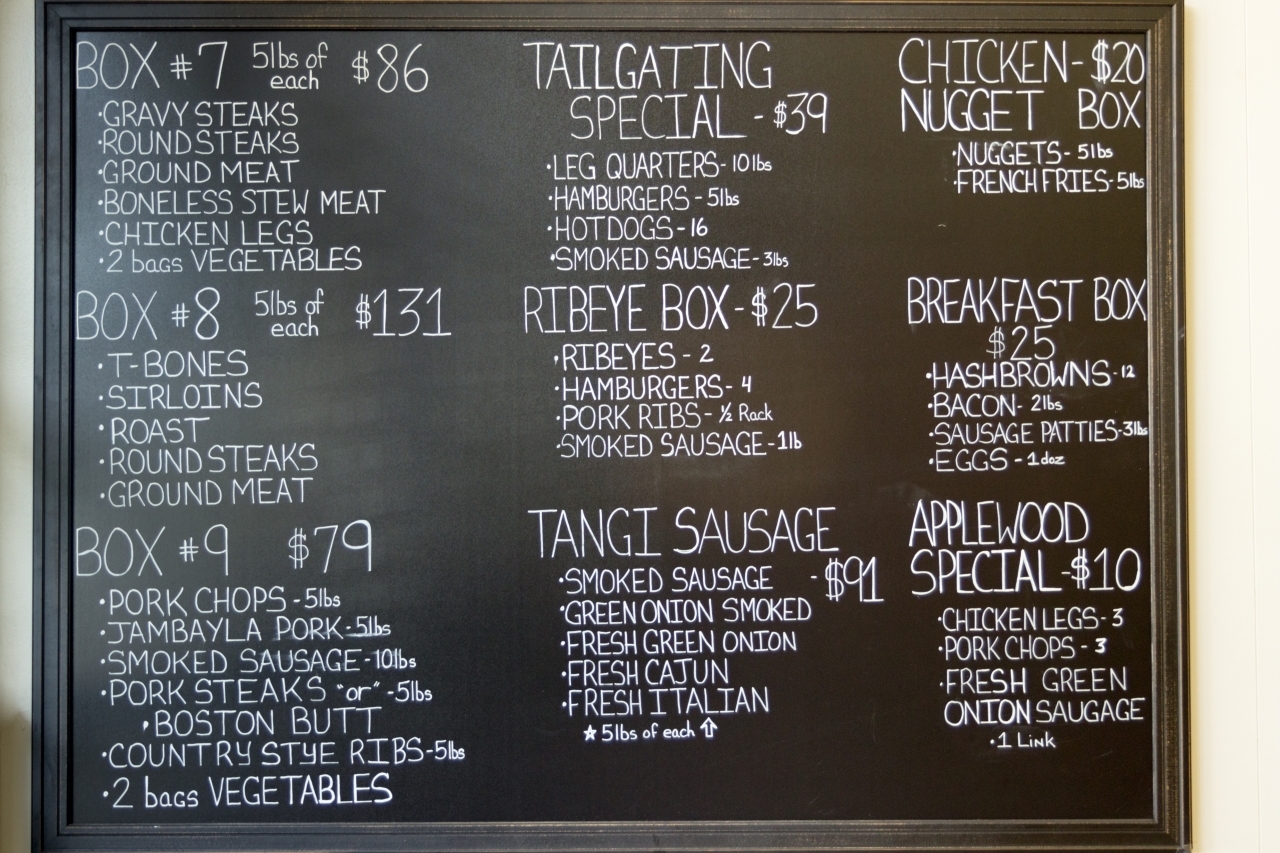 BOX #7 5lbs of each $86
·GRAVY STEAKS
·ROUND STEAKS
·GROUND MEAT
·BONELESS STEW MEAT
·CHICKEN LEGS
·2 bags VEGETABLES
BOX #8 5lbs of each $131
·T-BONES
·SIRLOINS
·ROAST
·ROUND STEAKS
·GROUND MEAT
BOX #9 $79
·PORK CHOPS - 5lbs
·JAMBAYLA PORK - 5lbs
·SMOKED SAUSAGE - 10lbs
·PORK STEAKS "or" - 5lbs
·BOSTON BUTT
·COUNTRY STYE RIBS - 5lbs
·2 bags VEGETABLES
TAILGATING
SPECIAL - $39
·LEG QUARTERS - 10lbs
·HAMBURGERS - 5lbs
·HOTDOGS - 16
·SMOKED SAUSAGE - 3lbs
RIBEYE BOX - $25
·RIBEYES - 2
·HAMBURGERS - 4
·PORK RIBS - ½ Rack
·SMOKED SAUSAGE - 1lb
TANGI SAUSAGE
·SMOKED SAUSAGE - $91
·GREEN ONION SMOKED
·FRESH GREEN ONION
·FRESH CAJUN
·FRESH ITALIAN
☆ 5lbs of each ⇧
CHICKEN - $20
NUGGET BOX
·NUGGETS - 5lbs
·FRENCH FRIES - 5lbs
BREAKFAST BOX
$25
·HASHBROWNS - 12
·BACON - 2lbs
·SAUSAGE PATTIES - 3lbs
·EGGS - 1doz
APPLEWOOD
SPECIAL - $10
·CHICKEN LEGS - 3
·PORK CHOPS - 3
·FRESH GREEN
ONION SAUGAGE
·1 Link